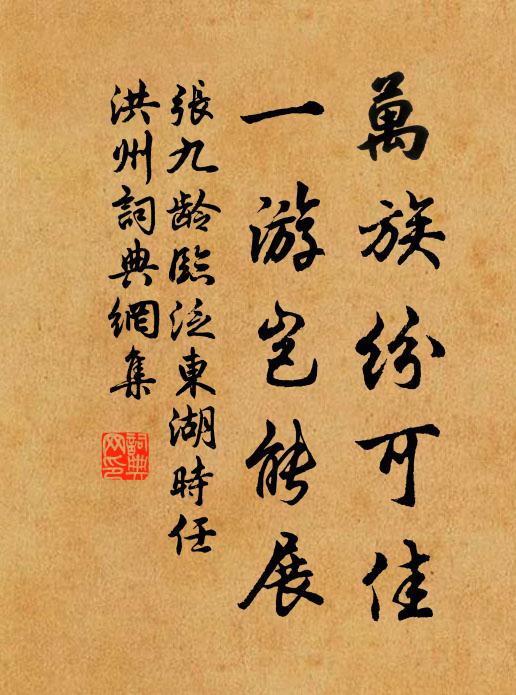 萬族紛可佳
一游岂能展
張九龄臨泛東湖時任
洪州詞典網集
詞典
网印